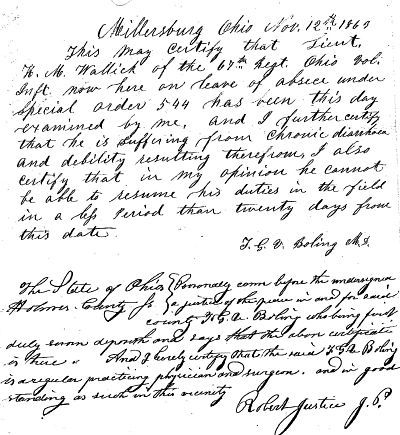 Millersburg Ohio Nov. 12th 1863
This may certify that Lieut.
K. M. Wallick of the 67th Regt. Ohio vol.
Inft. now here on leave of absece under
Special order 544 has been this day
examined by me, and I further certify
that he is suffiring from Chronic diarrhoea
and debility resulting therefrom, I also
certify that in my opinion he cannot
be able to resume his duties in the field
in a less Period than twenty days from
this date.
T. G. V. Boling M.D.
The State of Ohio } Personaly come before the undersigned
Holmes County Ss } a justice of the peace in and for said
county T. G. V. Boling who being first
duly sworn deposeth and says that the above certificate
is true. And I herely certify that the said T. G. V. Boling
is a regular practicing physician and surgeon, and in good
standing as such in this vicinity
Robert Justice J. P.